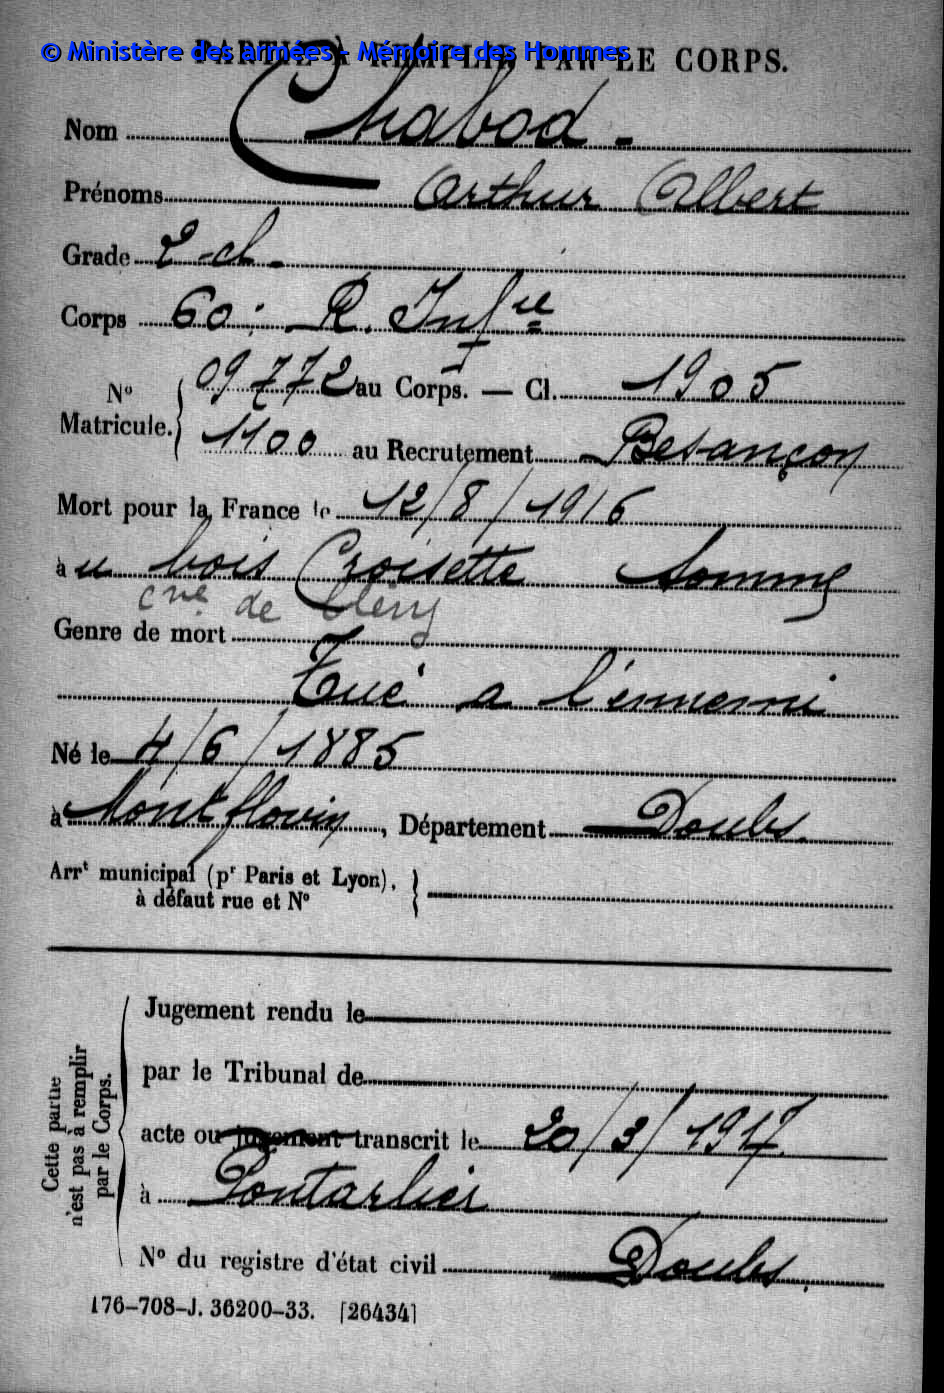 © Ministère des armées - Mémoire des Hommes
PARTIE À REMPLIR PAR LE CORPS.
Nom Chabod -
Prénoms Arthur Albert
Grade 2 - cl -
Corps 60 : R. Infie
No Matricule. 09772 au Corps. — Cl. 1905
1100 au Recrutement Besançon
Mort pour la France le 12/8/1916
à u bois Croisette Somme
cne de Cléry
Genre de mort
Tué a l'ennemi
Né le 4/6/1885
à Montflovin, Département Doubs.
Arrt municipal (pr Paris et Lyon),
à défaut rue et No
Cette partie n'est pas à remplir par le Corps.
Jugement rendu le
par le Tribunal de
acte ou jugement transcrit le 20/3/1917.
à Pontarlier
No du registre d'état civil Doubs.
176-708-J. 36200-33. [26434]